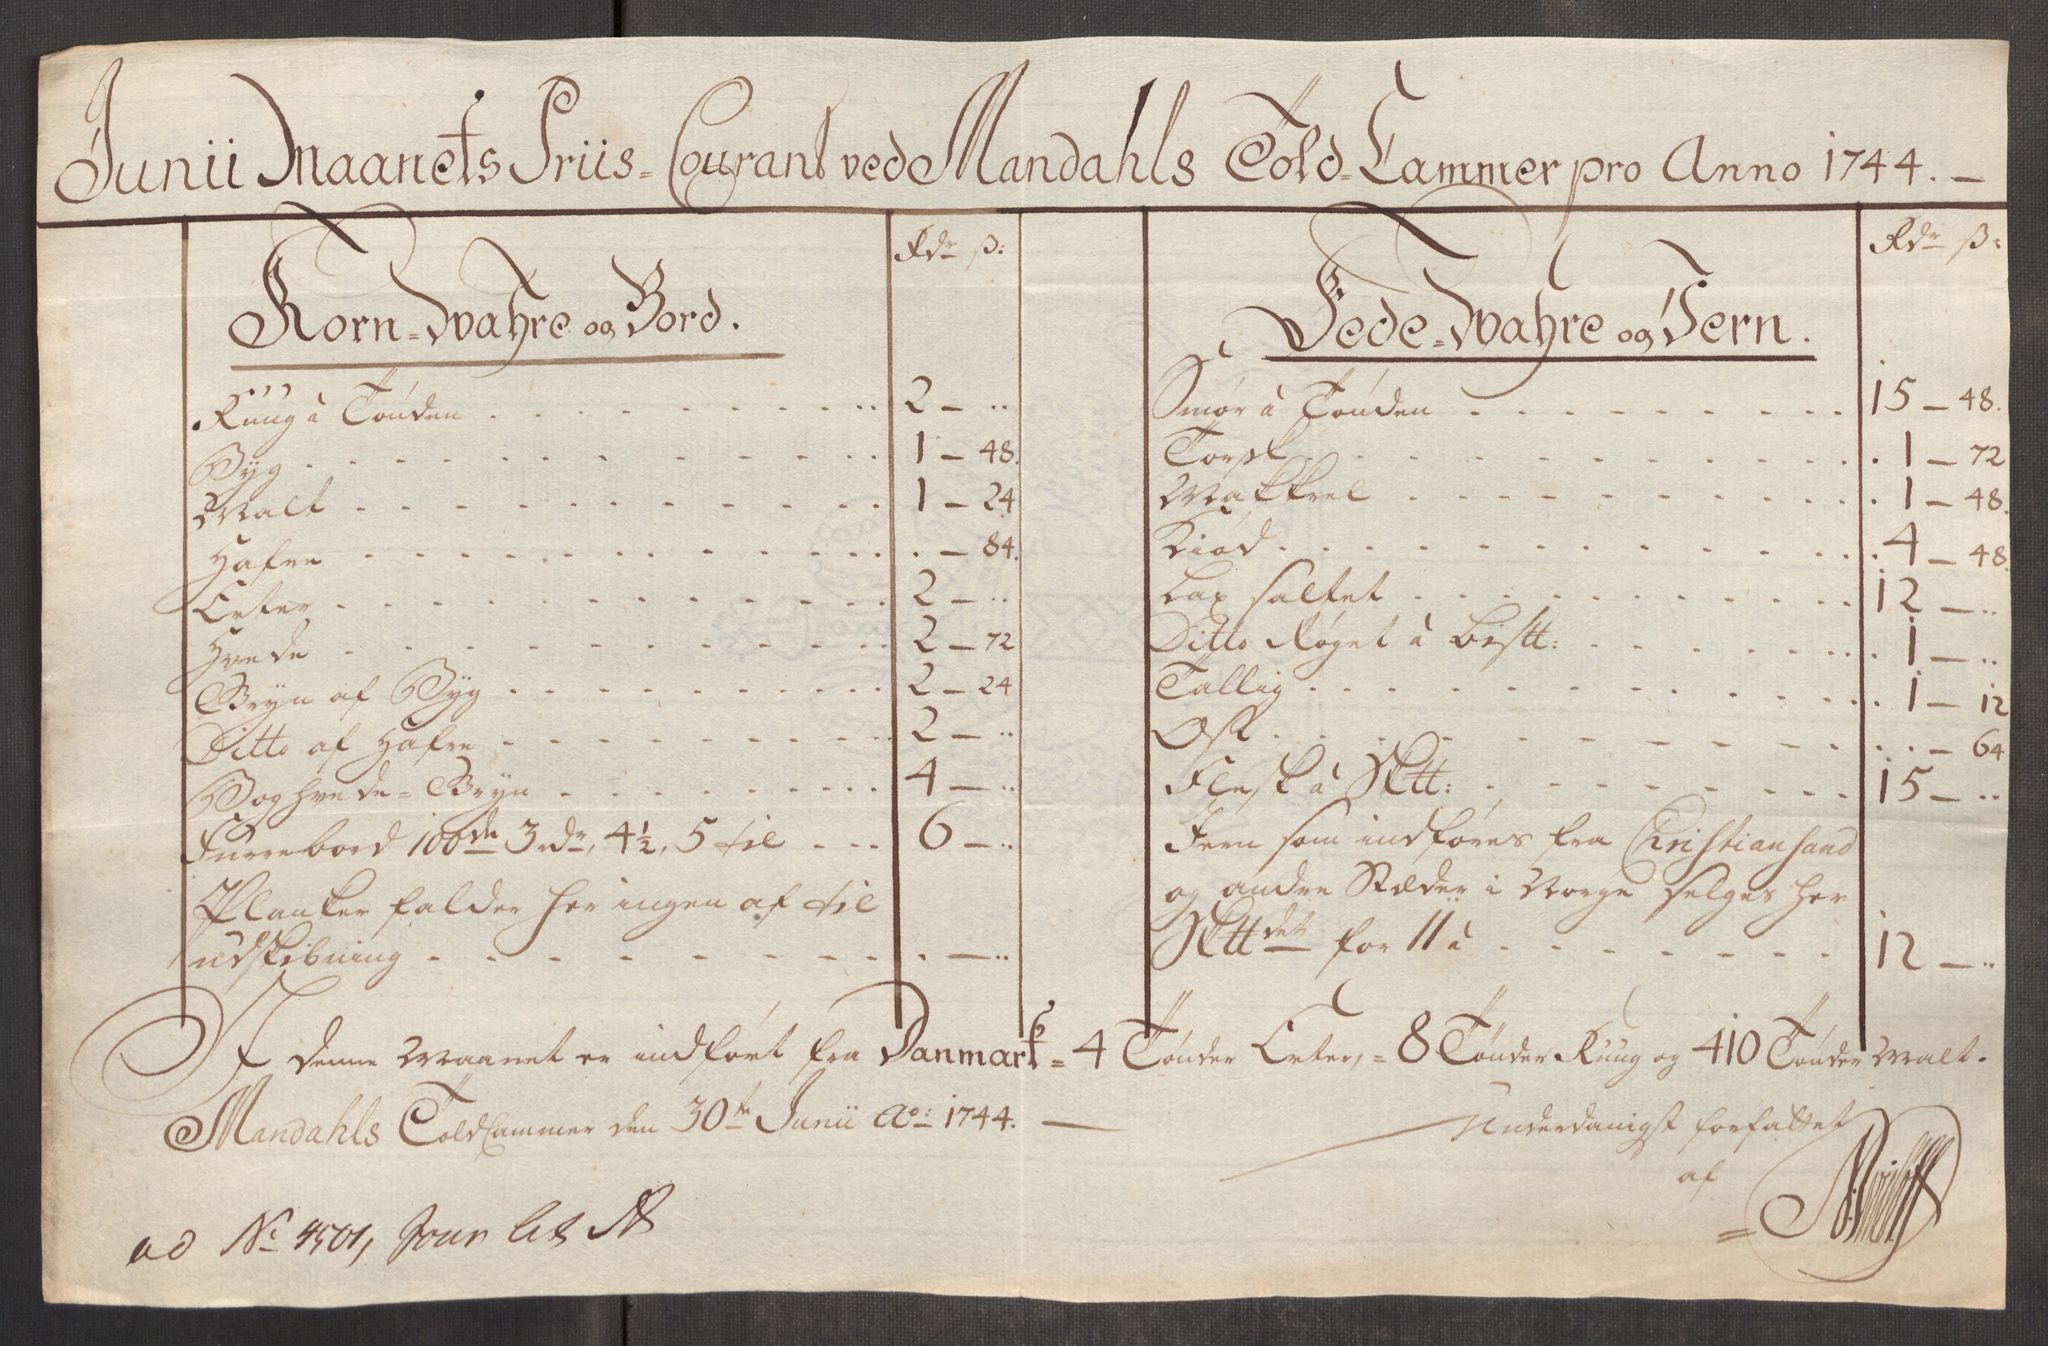 Junii Maanets Priis-Courant ved Mandahls Told-Cammer pro Anno 1744. —
Korn-Wahre og Bord.
Rdr ß:
Ruug à Tønden . . . 2 — ..
Byg . . . 1 — 48.
Malt . . . 1 — 24
Hafre . . . . — 84.
Erter . . . 2 — ..
Hvede . . . 2 — 72
Gryn af Byg . . . 2 — 24
Ditto af Hafre . . . 2 — ..
Boghvede-Gryn . . . 4 — ..
Furrebord 100de 3dr, 4½, 5 til . . . 6 — ..
Planker falder her ingen af til
udskibning . . . . — ..
Fede-Wahre og Jern.
Rdr ß:
Smør à Tønden . . . 15 — 48.
Torsk . . . 1 — 72
Makkrel . . . 1 — 48.
Kiød . . . 4 — 48.
Lax saltet . . . 12 — ..
Ditto Røget à Bistt: . . . 1 — ..
Tallig . . . 1 — 12
Ost . . . . — 64
Flesk à Sktt: . . . 15 — ..
Jern som indføres fra Christiansand
og andre Stæder i Norge selges her
Skttdet for 11 à . . . 12 — ..
I denne Maanet er indført fra Danmark = 4 Tønder Erter, = 8 Tønder Ruug og 410 Tønder Malt.
Mandahls ToldCammer den 30te Junii Ao: 1744. —
Underdanigst forfattet
af
ad No 4501, Jour Lit A